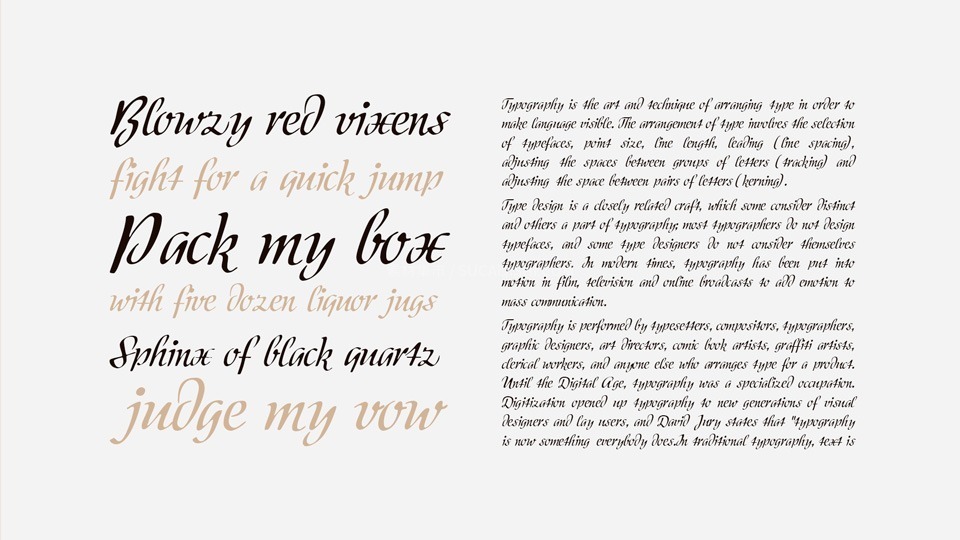 Blowzy red vixens
fight for a quick jump
Pack my box
with five dozen liquor jugs
Sphinx of black quartz
judge my vow
Typography is the art and technique of arranging type in order to
make language visible. The arrangement of type involves the selection
of typefaces, point size, line length, leading (line spacing),
adjusting the spaces between groups of letters (tracking) and
adjusting the space between pairs of letters (kerning).
Type design is a closely related craft, which some consider distinct
and others a part of typography; most typographers do not design
typefaces, and some type designers do not consider themselves
typographers. In modern times, typography has been put into
motion in film, television and online broadcasts to add emotion to
mass communication.
Typography is performed by typesetters, compositors, typographers,
graphic designers, art directors, comic book artists, graffiti artists,
clerical workers, and anyone else who arranges type for a product.
Until the Digital Age, typography was a specialized occupation.
Digitization opened up typography to new generations of visual
designers and lay users, and David Jury states that "typography
is now something everybody does.In traditional typography, text is